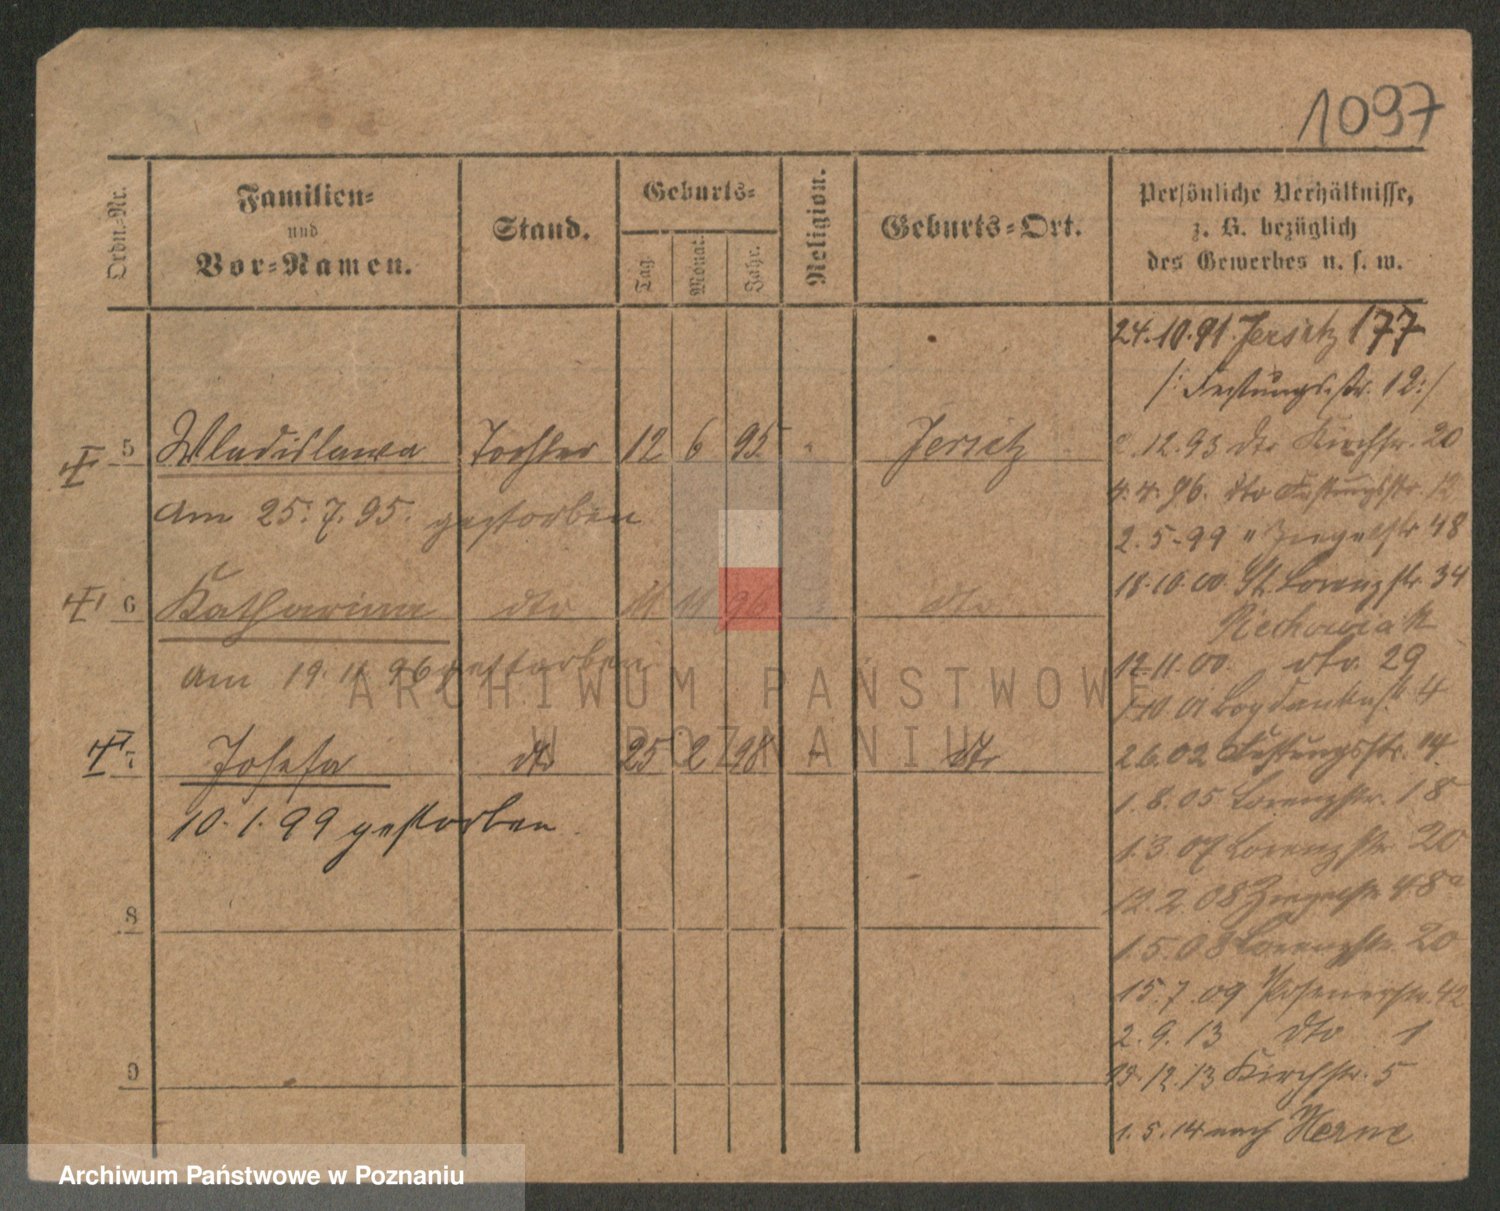 1097
Ordn.-Nr.
Familien- und Vor-Namen.
Stand.
Geburts-
Tag.
Monat.
Jahr.
Religion.
Geburts-Ort.
Persönliche Verhältnisse,
z. B. bezüglich
des Gewerbes u. s. w.
24.10.91. Jersitz 177
/: Festungsstr. 12 :/
5 Wladislawa Tochter 12 6 95 " Jersitz
am 25.7.95. gestorben
6 Katharina dto 11 11 96 " dto
am 19.11.96 gestorben
7 Josefa dto 25 2 98 " dto
10.1.99 gestorben
8
9
12.93 dto Kirchstr. 20
4.4.96. dto Festungsstr 12
2.5.99 " Ziegelstr 48
18.10.00 St. Lorenzstr. 34
Riechowiak
12.11.00. dto. 29
01 Bogdankastr 4
2.6.02 Festungsstr. 14
1.8.05 Lorenzstr. 18
1.3.07 Lorenzstr 20
12.2.08 Ziegelstr 48a
1.5.08 Lorenzstr. 20
15.7.09 Posenerstr. 42
2.9.13 dto 1
12.13 Kirchstr. 5
1.5.14 nach Herne
ARCHIWUM PAŃSTWOWE
W POZNANIU
Archiwum Państwowe w Poznaniu